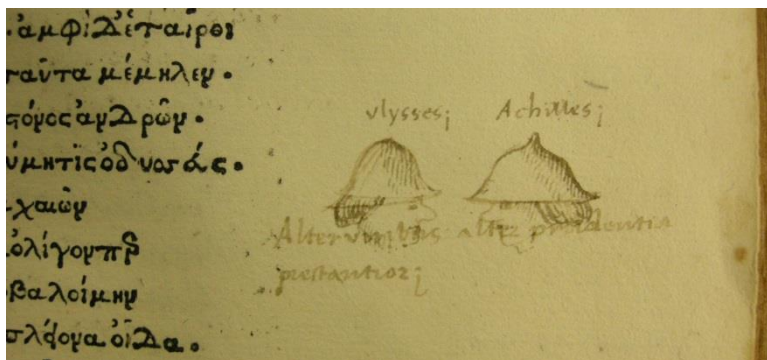 ἀμφὶ δ' ἑταῖροι
ταῦτα μέμηλεν.
γόνος ἀνδρῶν.
ύμητις ὀδυσσεύς.
χαιῶν
ὀλίγον περ
βαλοίμην
πλείονα οἶδα.
vlysses;
Achilles;
Alter viribus alter prudentia
prestantior;